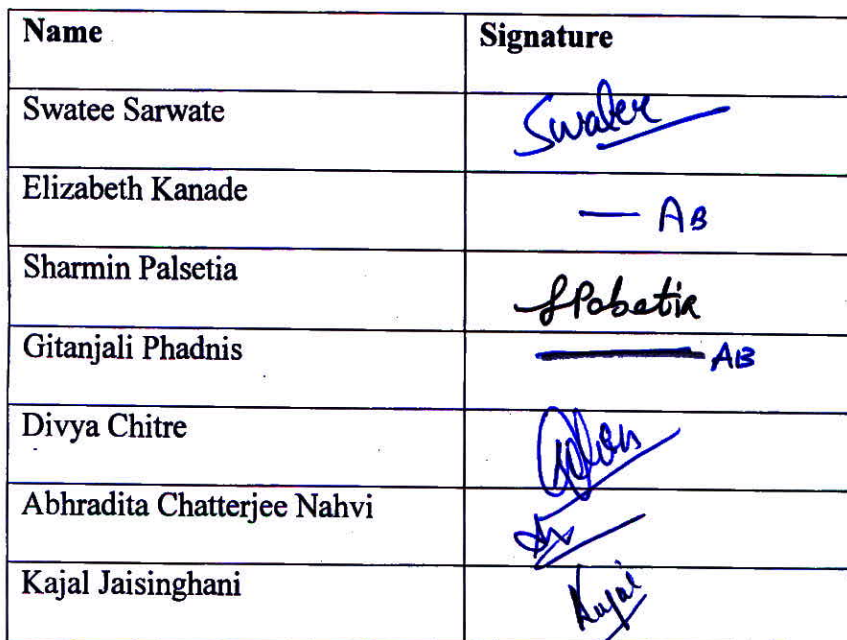 Name Signature
Swatee Sarwate Swatee
Elizabeth Kanade — AB
Sharmin Palsetia SPalsetia
Gitanjali Phadnis — AB
Divya Chitre
Abhradita Chatterjee Nahvi
Kajal Jaisinghani Kajal